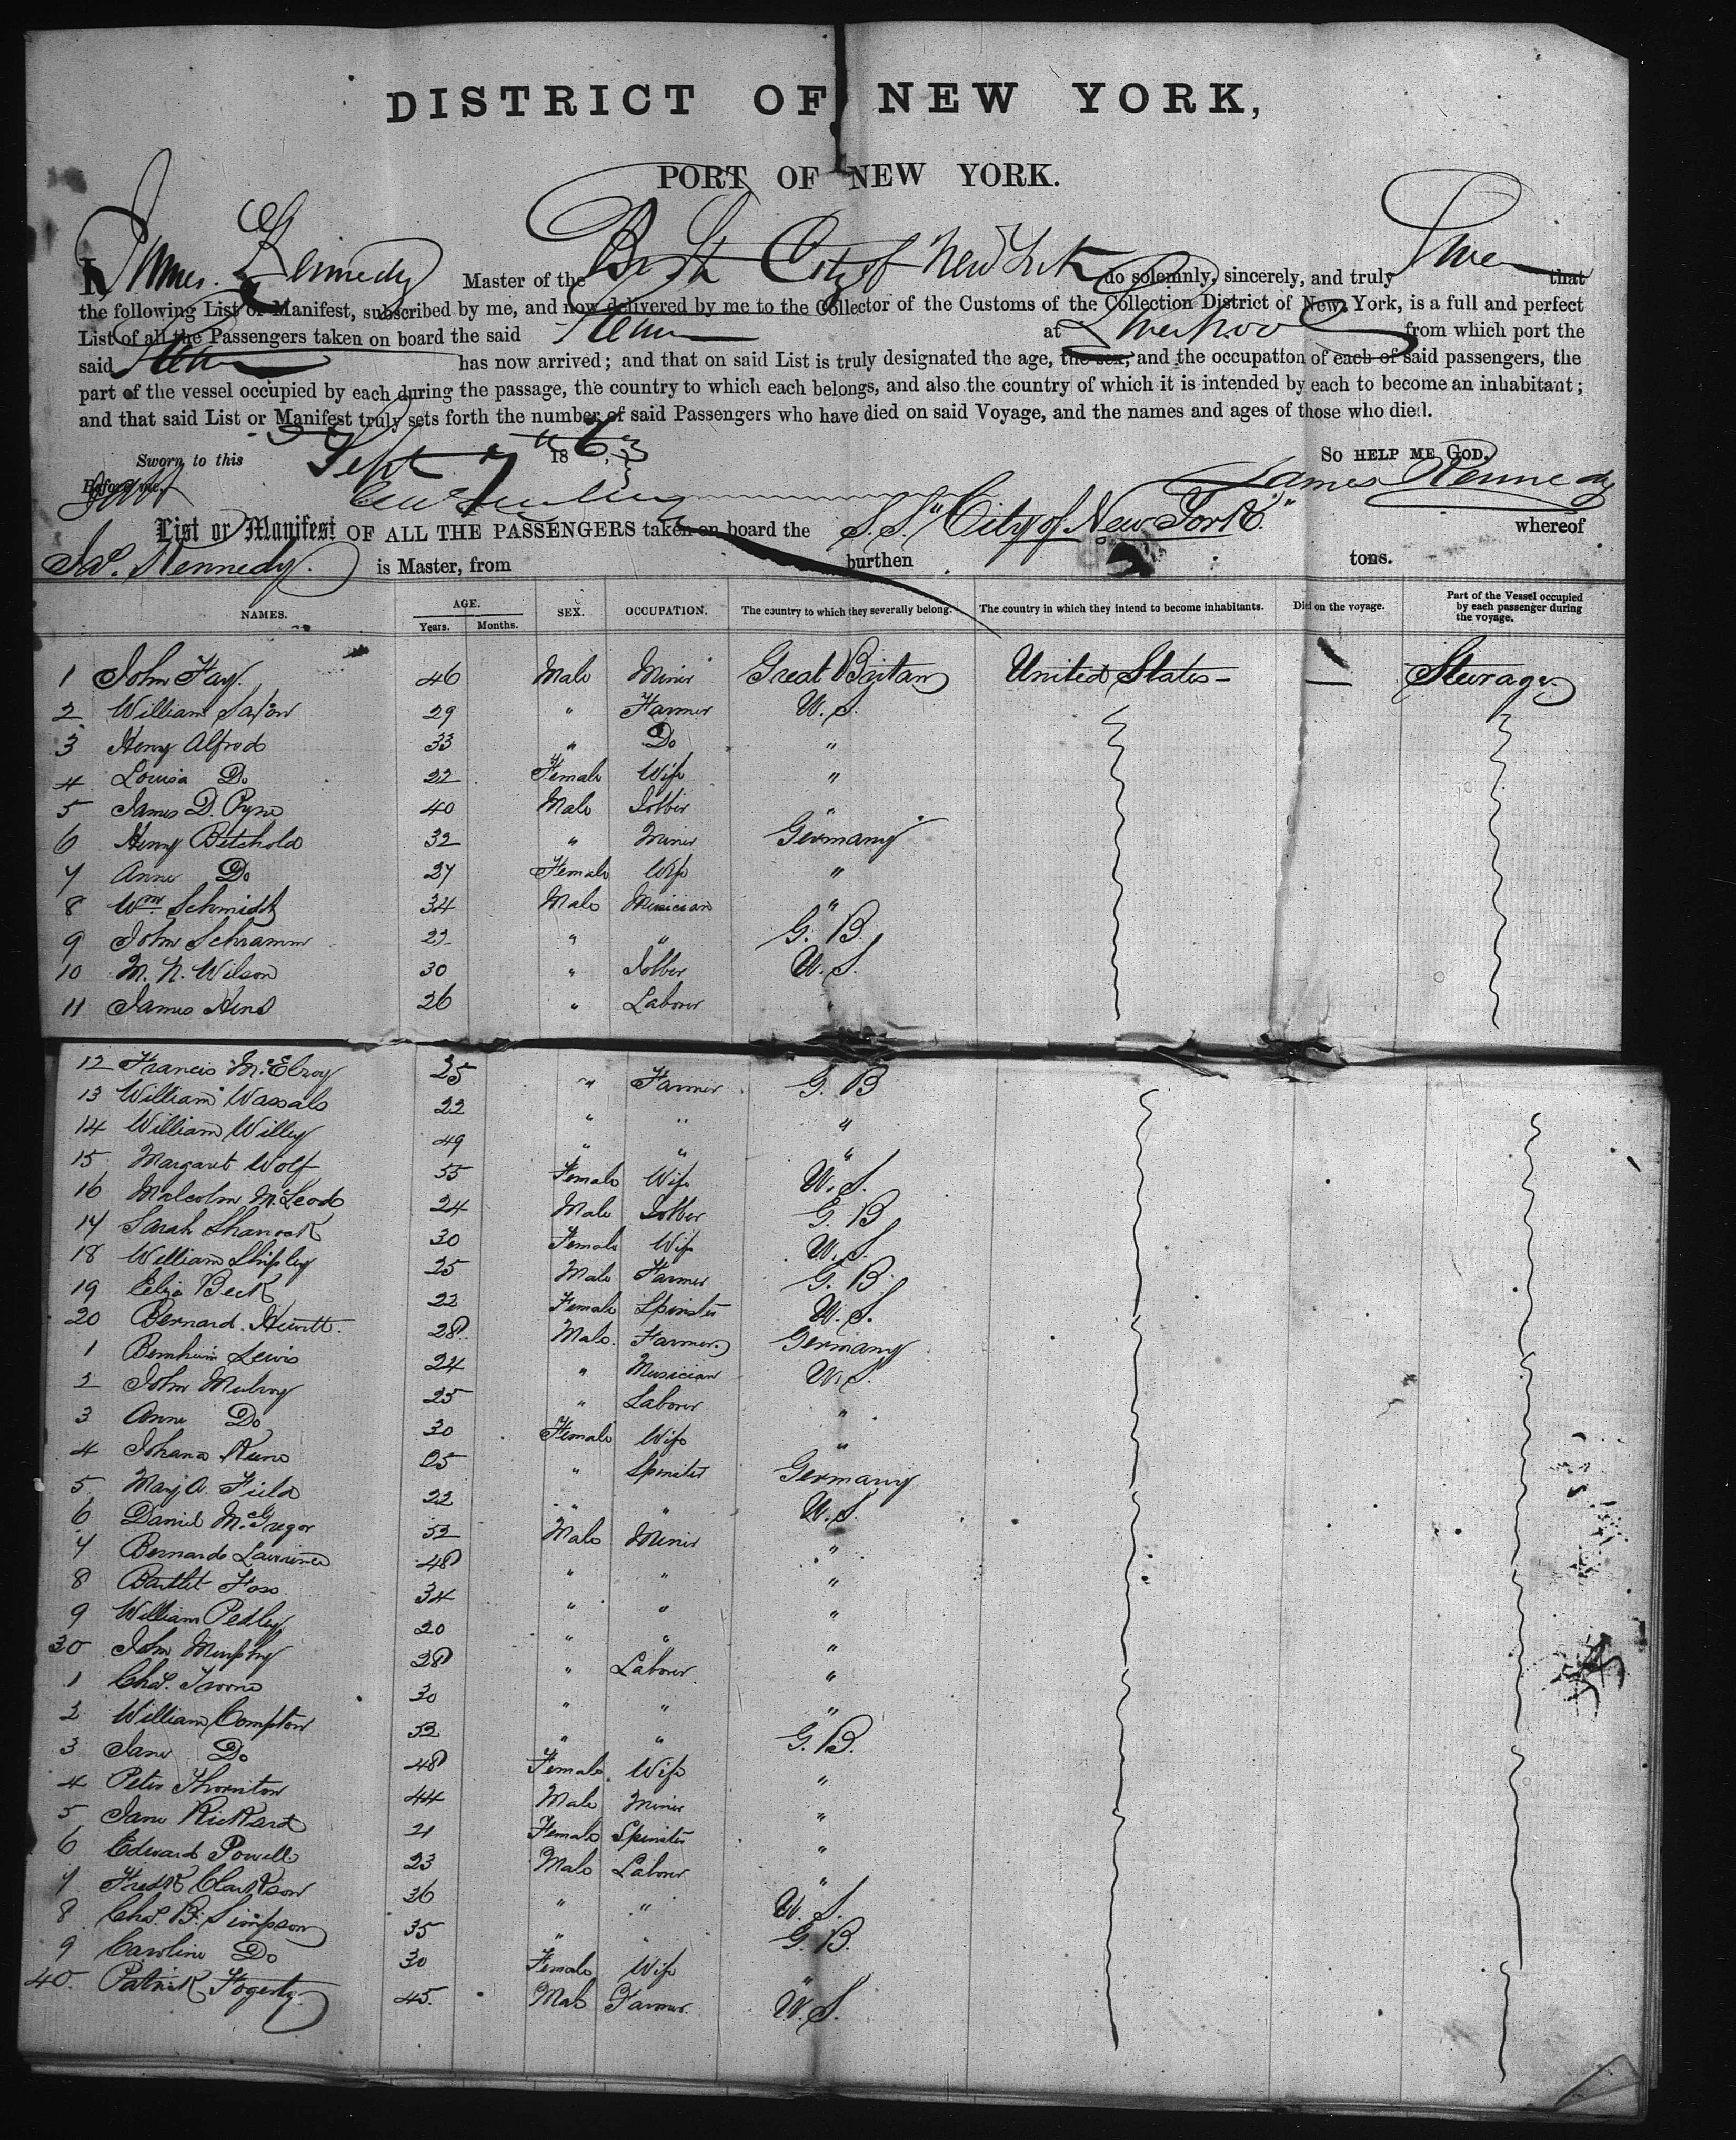 DISTRICT OF NEW YORK,
PORT OF NEW YORK.
I, James Kennedy Master of the Br Str City of New York do solemnly, sincerely, and truly Swear that
the following List or Manifest, subscribed by me, and now delivered by me to the Collector of the Customs of the Collection District of New York, is a full and perfect
List of all the Passengers taken on board the said Steamer at Liverpool from which port the
said Steamer has now arrived; and that on said List is truly designated the age, the sex, and the occupation of each of said passengers, the
part of the vessel occupied by each during the passage, the country to which each belongs, and also the country of which it is intended by each to become an inhabitant;
and that said List or Manifest truly sets forth the number of said Passengers who have died on said Voyage, and the names and ages of those who died.
Sworn to this Sept 7th 1863 SO HELP ME GOD.
Before me, James Kennedy
List or Manifest OF ALL THE PASSENGERS taken on board the S.S. "City of New York" whereof
Jas. Kennedy is Master, from burthen tons.
NAMES. AGE. Years. Months. SEX. OCCUPATION. The country to which they severally belong. The country in which they intend to become inhabitants. Died on the voyage. Part of the Vessel occupied by each passenger during the voyage.
1 John Fay. 46 Male Miner Great Britain United States — Steerage
2 William Saxon 29 " Farmer U.S.
3 Henry Alfred 33 " Do "
4 Louisa Do 22 Female Wife "
5 James D. Pyne 40 Male Jobber "
6 Henry Betchold 32 " Miner Germany
7 Anne Do 27 Female Wife "
8 Wm Schmidt 34 Male Musician "
9 John Schramm 22 " " G. B.
10 M. N. Wilson 30 " Jobber U.S.
11 James Hend 26 " Laborer "
12 Francis McElroy 25 " Farmer G. B
13 William Wassals 22 " " "
14 William Willey 49 " " "
15 Margaret Wolf 55 Female Wife U.S.
16 Malcolm McLeod 24 Male Jobber G. B
17 Sarah Sharrock 30 Female Wife U.S.
18 William Shipley 25 Male Farmer G. B.
19 Eliza Beck 22 Female Spinster U.S.
20 Bernard Hewitt. 28 Male Farmer Germany
1 Bernheim Lewis 24 " Musician U.S.
2 John Mulroy 25 " Laborer "
3 Anne Do 30 Female Wife "
4 Johana 25 " Spinster Germany
5 Mary A. Field 22 " " U.S.
6 Daniel McGregor 52 Male Miner "
7 Bernard Lawrence 48 " " "
8 Bartlet Foss 34 " " "
9 William Pedley 20 " " "
30 John Murphy 28 " Laborer "
1 Chas. 30 " " "
2 William Compton 52 " " G. B.
3 Jane Do 48 Female Wife "
4 Peter Thornton 44 Male Miner "
5 Jane Rickard 21 Female Spinster "
6 Edward Powell 23 Male Laborer "
7 Fredk Clarkson 36 " " U.S.
8 Chas. B. Simpson 35 " " G. B.
9 Caroline Do 30 Female Wife "
40. Patrick Fogerty. 45. Male Farmer U.S.